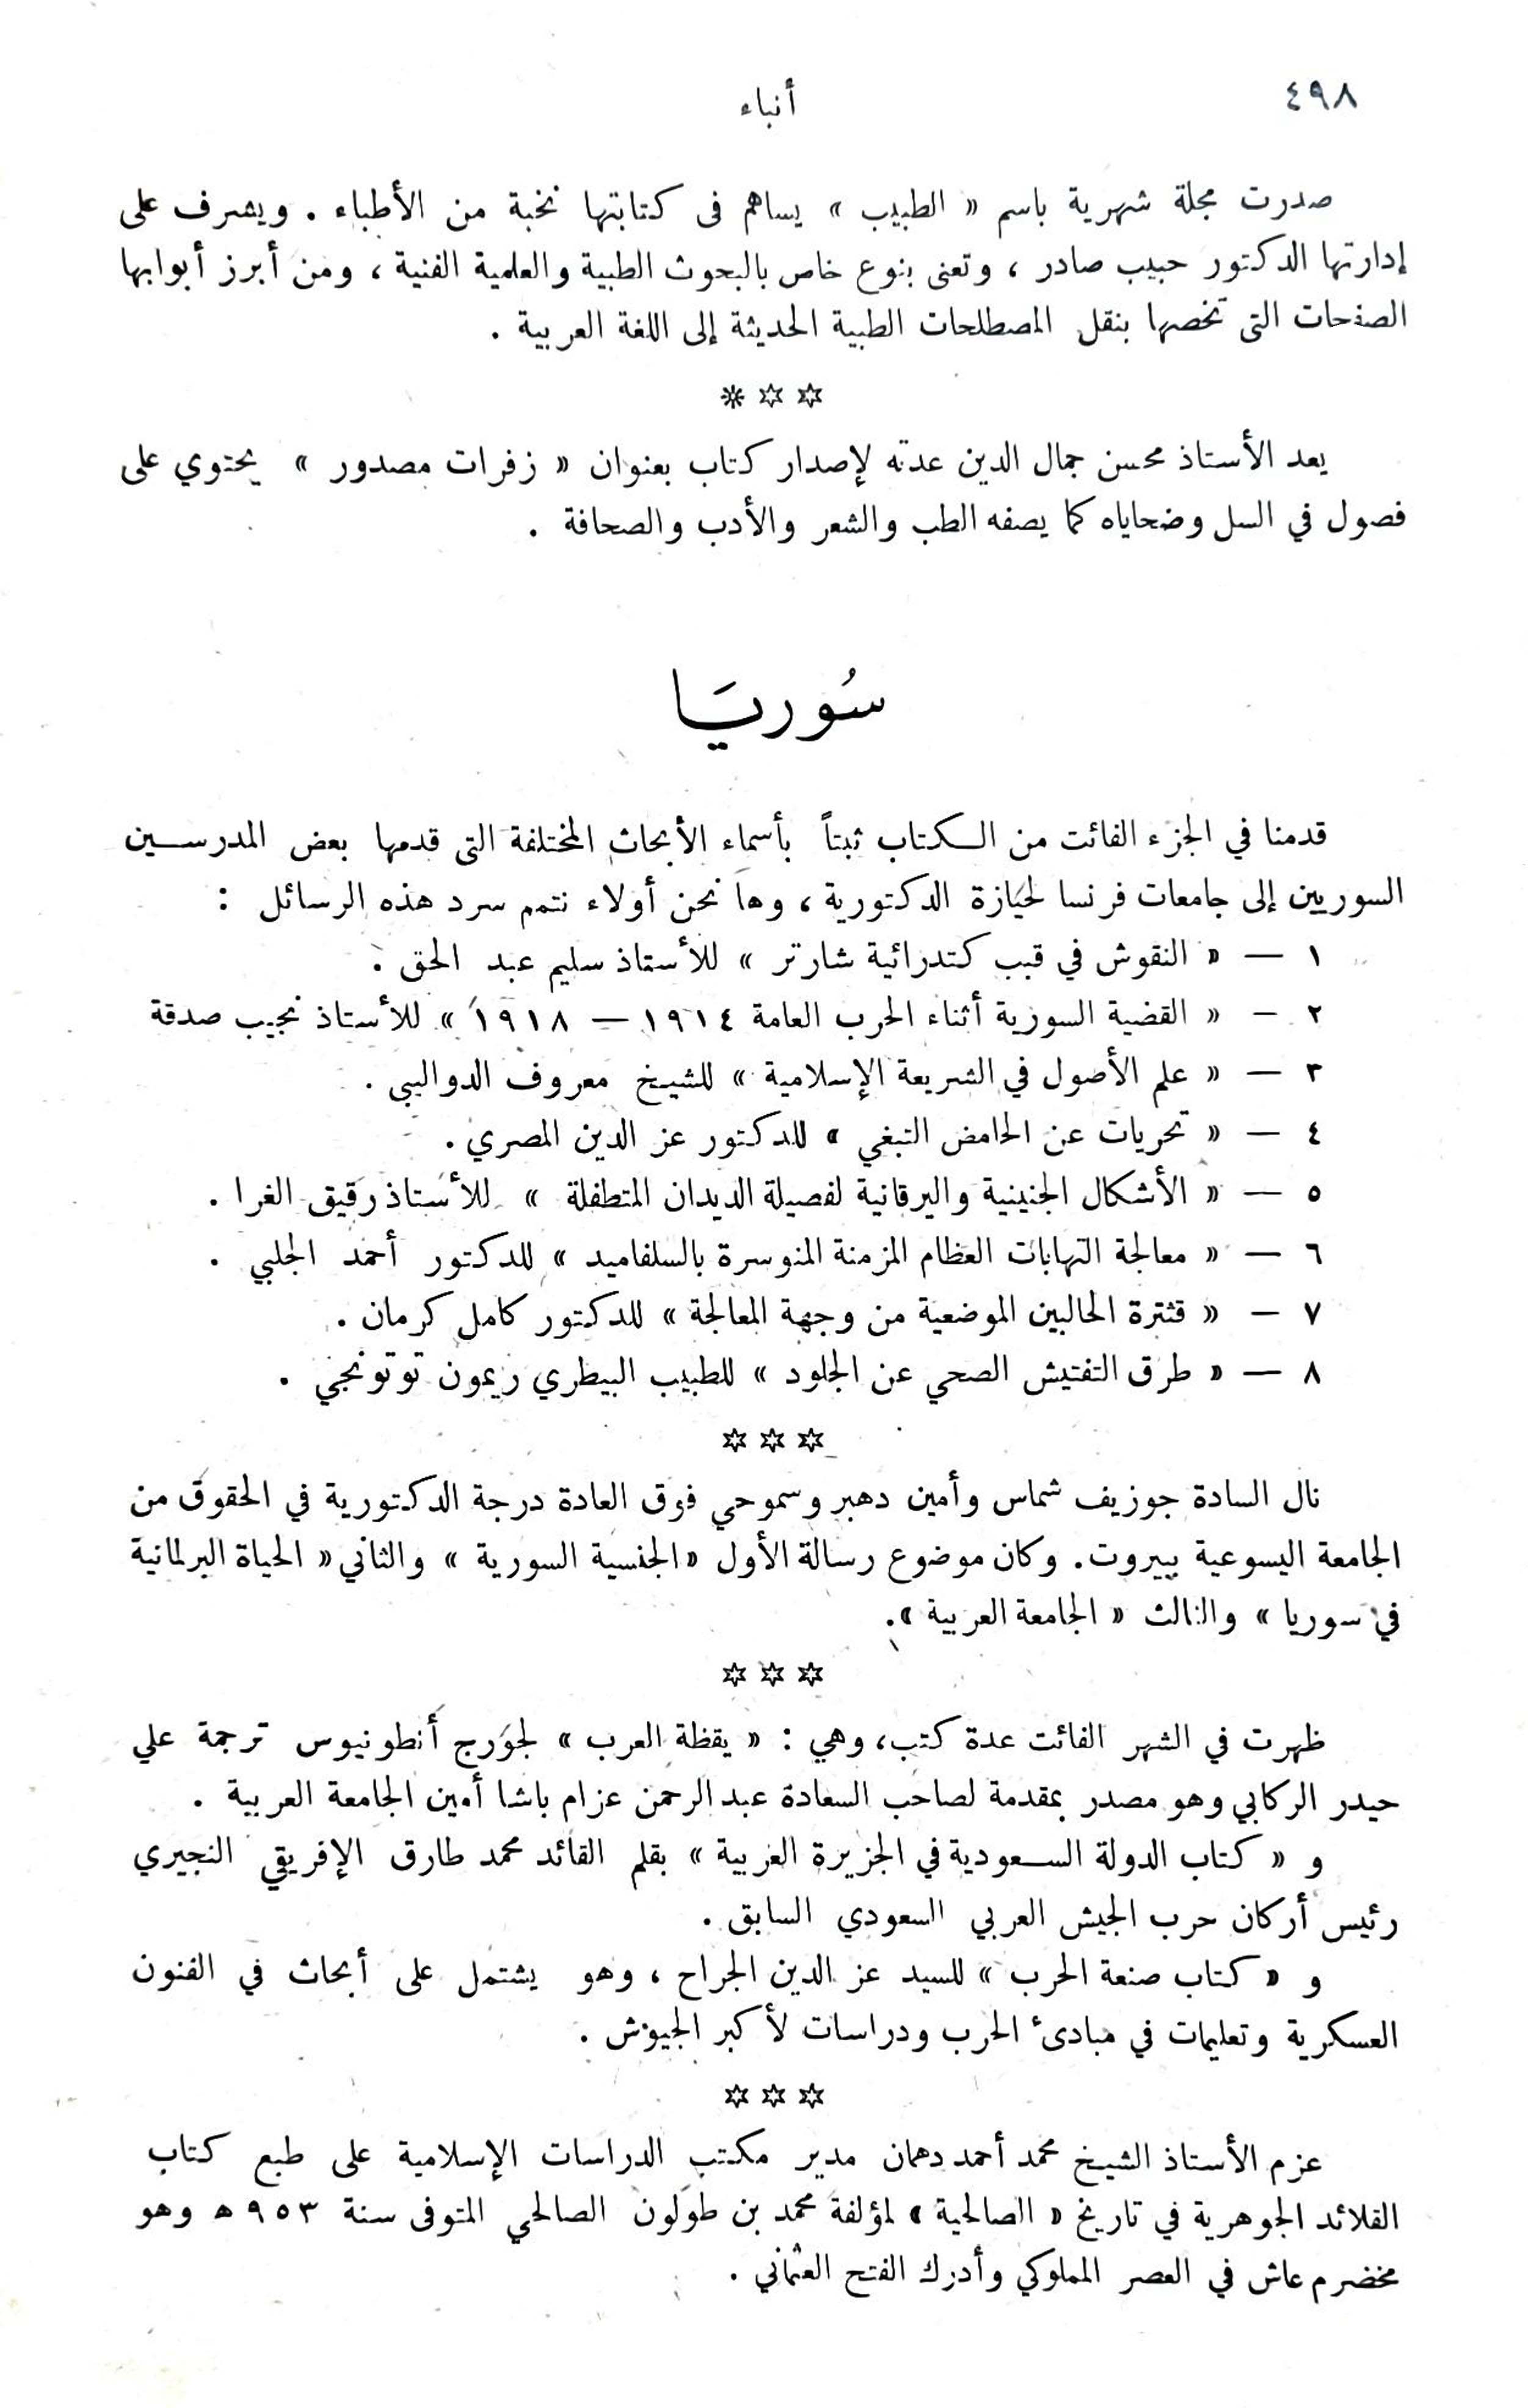 ٤٩٨
أنباء
صدرت مجلة شهرية باسم « الطبيب » يساهم فى كتابتها نخبة من الأطباء . ويشرف على
إدارتها الدكتور حبيب صادر ، وتعنى بنوع خاص بالبحوث الطبية والعلمية الفنية ، ومن أبرز أبوابها
الصفحات التى تخصها بنقل المصطلحات الطبية الحديثة إلى اللغة العربية .
* * *
يعد الأستاذ محسن جمال الدين عدته لإصدار كتاب بعنوان « زفرات مصدور » يحتوي على
فصول في السل وضحاياه كما يصفه الطب والشعر والأدب والصحافة .
سُوريَا
قدمنا في الجزء الفائت من الكتاب ثبتاً بأسماء الأبحاث المختلفة التى قدمها بعض المدرسين
السوريين إلى جامعات فرنسا لحيازة الدكتورية ، وها نحن أولاء نتمم سرد هذه الرسائل :
١ — « النقوش في قبب كتدرائية شارتر » للأستاذ سليم عبد الحق .
٢ — « القضية السورية أثناء الحرب العامة ١٩١٤ — ١٩١٨ » للأستاذ نجيب صدقة
٣ — « علم الأصول في الشريعة الإسلامية » للشيخ معروف الدواليبي .
٤ — « تحريات عن الحامض التبغي » للدكتور عز الدين المصري .
٥ — « الأشكال الجنينية واليرقانية لفصيلة الديدان المتطفلة » للأستاذ رقيق الغرا .
٦ — « معالجة التهابات العظام المزمنة المنوسرة بالسلفاميد » للدكتور أحمد الجلبي .
٧ — « قثترة الحالبين الموضعية من وجهة المعالجة » للدكتور كامل كرمان .
٨ — « طرق التفتيش الصحي عن الجلود » للطبيب البيطري ريمون توتونجي .
* * *
نال السادة جوزيف شماس وأمين دهبر وسموحي فوق العادة درجة الدكتورية في الحقوق من
الجامعة اليسوعية ببيروت . وكان موضوع رسالة الأول « الجنسية السورية » والثاني « الحياة البرلمانية
في سوريا » والثالث « الجامعة العربية » .
* * *
ظهرت في الشهر الفائت عدة كتب ، وهي : « يقظة العرب » لجورج أنطونيوس ترجمة علي
حيدر الركابي وهو مصدر بمقدمة لصاحب السعادة عبد الرحمن عزام باشا أمين الجامعة العربية .
و « كتاب الدولة السعودية في الجزيرة العربية » بقلم القائد محمد طارق الإفريقي النجيري
رئيس أركان حرب الجيش العربي السعودي السابق .
و « كتاب صنعة الحرب » للسيد عز الدين الجراح ، وهو يشتمل على أبحاث في الفنون
العسكرية وتعليمات في مبادئ الحرب ودراسات لأكبر الجيوش .
* * *
عزم الأستاذ الشيخ محمد أحمد دهمان مدير مكتب الدراسات الإسلامية على طبع كتاب
القلائد الجوهرية في تاريخ « الصالحية » لمؤلفة محمد بن طولون الصالحي المتوفى سنة ٩٥٣ ه وهو
مخضرم عاش في العصر المملوكي وأدرك الفتح العثماني .